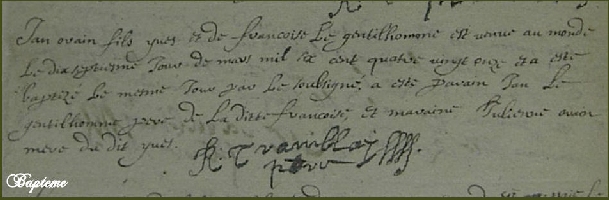 Jan ovain fils yves et de francoise Le gentilhomme est venue au monde
Le dixseptiesme Jour de mars mil six cent quatre vingt onze et a este
baptizé Le mesme Jour par Le soubsigné, a este parain Jan Le
gentilhomme pere de La ditte francoise, et maraine Julienne ovain
mere du dit yves.
Bapteme